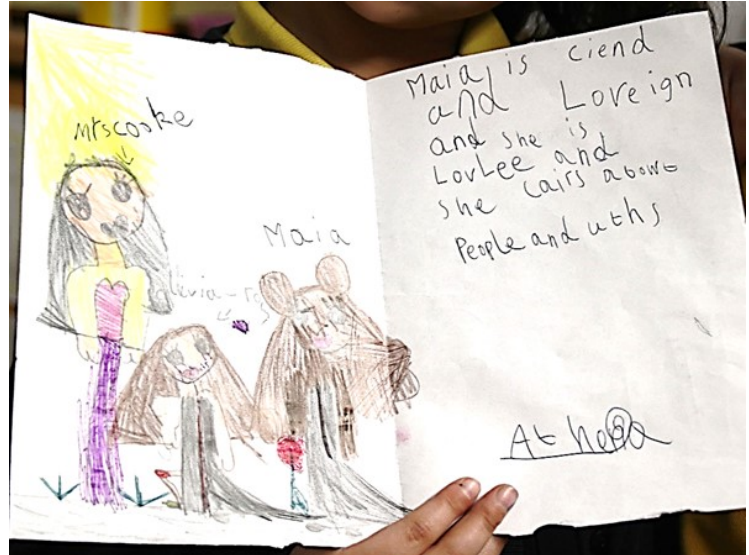 Mrs cooke
Maia
Maia is ciend
and Loveign
and she is
LovLee and
she cairs about
People and uths
Athena